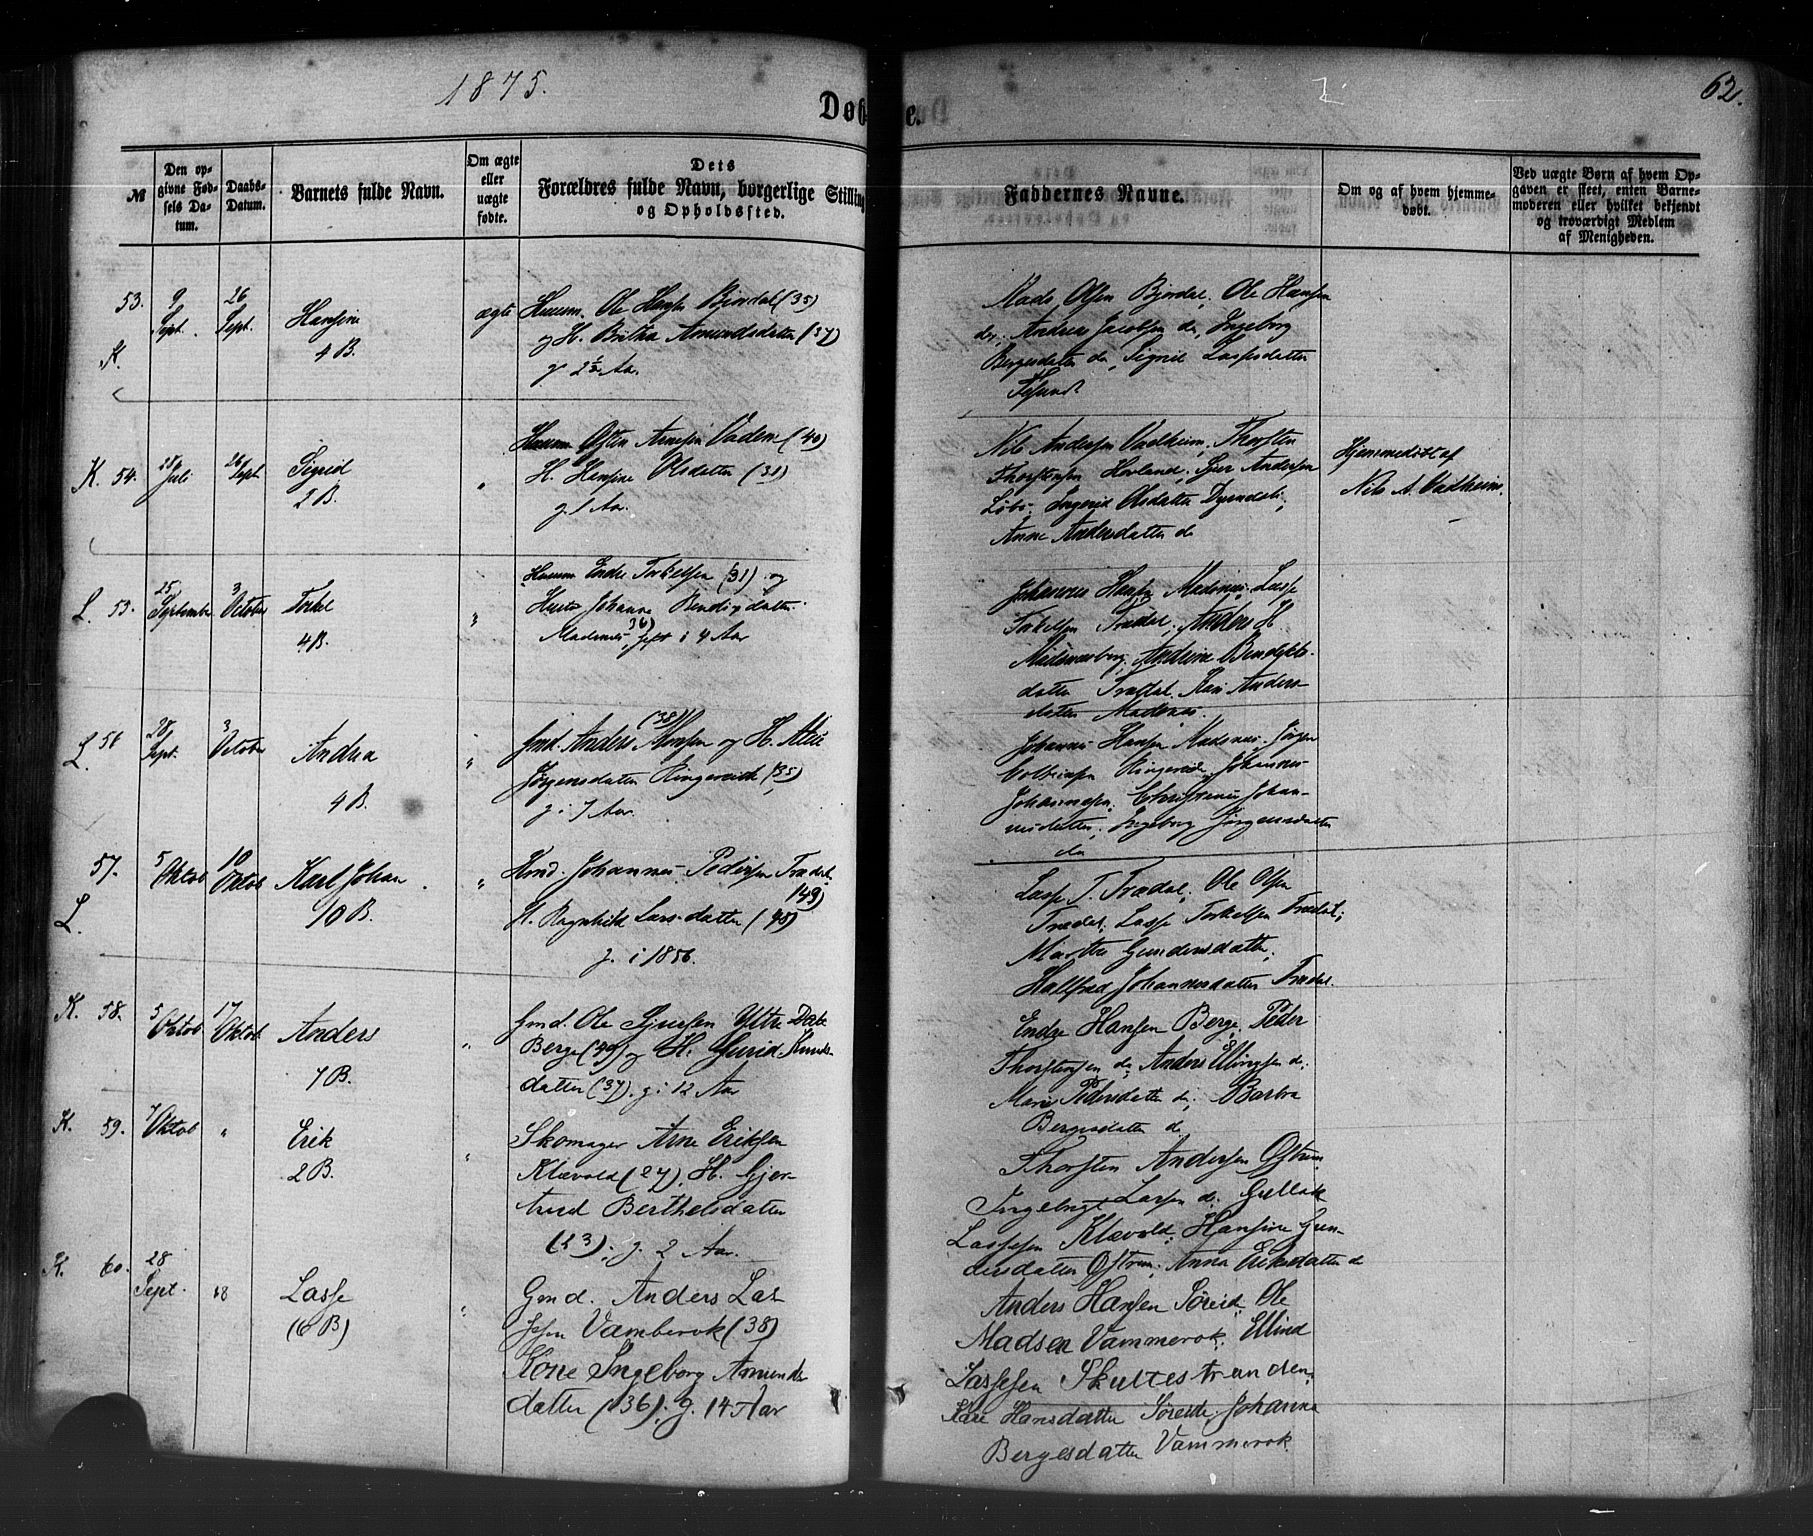 1875.
62.
Døb
e.
№
Den opgivne Fødsels Datum.
Daabs-Datum.
Barnets fulde Navn.
Om ægte eller uægte fødte.
Dets Forældres fulde Navn, borgerlige Stilling og Opholdssted.
Faddernes Navne.
Om og af hvem hjemmedøbt.
Ved uægte Børn af hvem Opgaven er skeet, enten Barnemoderen eller hvilket bekjendt og troværdigt Medlem af Menigheden.
53. 9 Sept. 26 Sept. Hansine ægte Huusm. Ole Hansen Bjordal (35)
K. 4 B. og H. Britha Amundsdatter (37)
g. 2½ Aar.
Mads Olsen Bjordal, Ole Hansen
do; Andreas Jacobsen do, Ingeborg
Bergesdatter do, Sigrid Lassesdatter
K. 54. Juli 26 Sept. Sigrid " Huusm Østen Arnesen Vadem (40)
2 B. H. Hansine Olsdatter (31)
g. 1 Aar.
Nils Andersen Vadheim, Thorsten
Thorstensen Hovland; Andersen
Olsdatter
Anne Andersdatter do
Hjemmedøbt af
Nils A. Vadheim.
L. 55. 25 September 3 October Torkel " Huusm Endre Torkelsen (31) og
4 B. Johanne Bendigdatter
Madsnes, (36) gift i 4 Aar
Johannes Hansen Madsnes; Lasse
Torkelsen Trædal, Anders H.
Andrine Bendikts-
datter Trædal. Kari Anders-
datter Madsnes.
L. 56 28 Sept. 3 October Andrea " Gmd. Anders (38) og H.
4 B. Jørgensdatter Ringereide (35)
g. i 7 Aar.
Johannes Hansen Madsnes. Jørgen
Ringereide, Johannes
Johannesen; Johan-
nesdatter; Ingeborg Jørgensdatter
do
57. 5 Oktob 10 Oktob Karl Johan " Hmd. Johannes Pedersen Trædal
L. 10 B. (49)
H. Ragnhild Larsdatter (45)
g. i 1856.
Lasse T. Trædal; Ole Olsen
Trædal; Lasse Torkelsen Trædal;
Martha Gundersdatter;
Halfrid Johannesdatter Trædal.
K. 58. 5 Oktob 17 Oktob Anders " Gmd. Ole Sjursen Ytre Dale
7 B. Berge (40) og H. Gurid Knuds-
datter (37). g. i 12 Aar
Endre Hansen Berge; Peder
Thorstensen do; Anders Ellingsen do;
Mari Pedersdatter do; Barbra
Bergesdatter do
K. 59. 7 Oktob " Erik " Skomager Arne Eriksen
2 B. Klævold (27), H. Gjer-
trud Berthelsdatter
(23); g. 2 Aar.
Thorsten Andersen Østrem,
Ingebrigt Larsen do; Gullak
Lassesen Klævold; Hansine Gun-
dersdatter Østrem; Anna Eriksdatter do
K. 60. 28 Sept. 18 Lasse " Gmd. Anders Las-
(6 B) sesen Vamberok (38)
Kone Ingeborg Amunds
datter (36); g. 14 Aar
Anders Hansen Søreide; Ole
Madsen Vammerok; Elling
Lassesen Skultestranden;
Kari Hansdatter Søreide; Johanna
Bergesdatter Vammerok